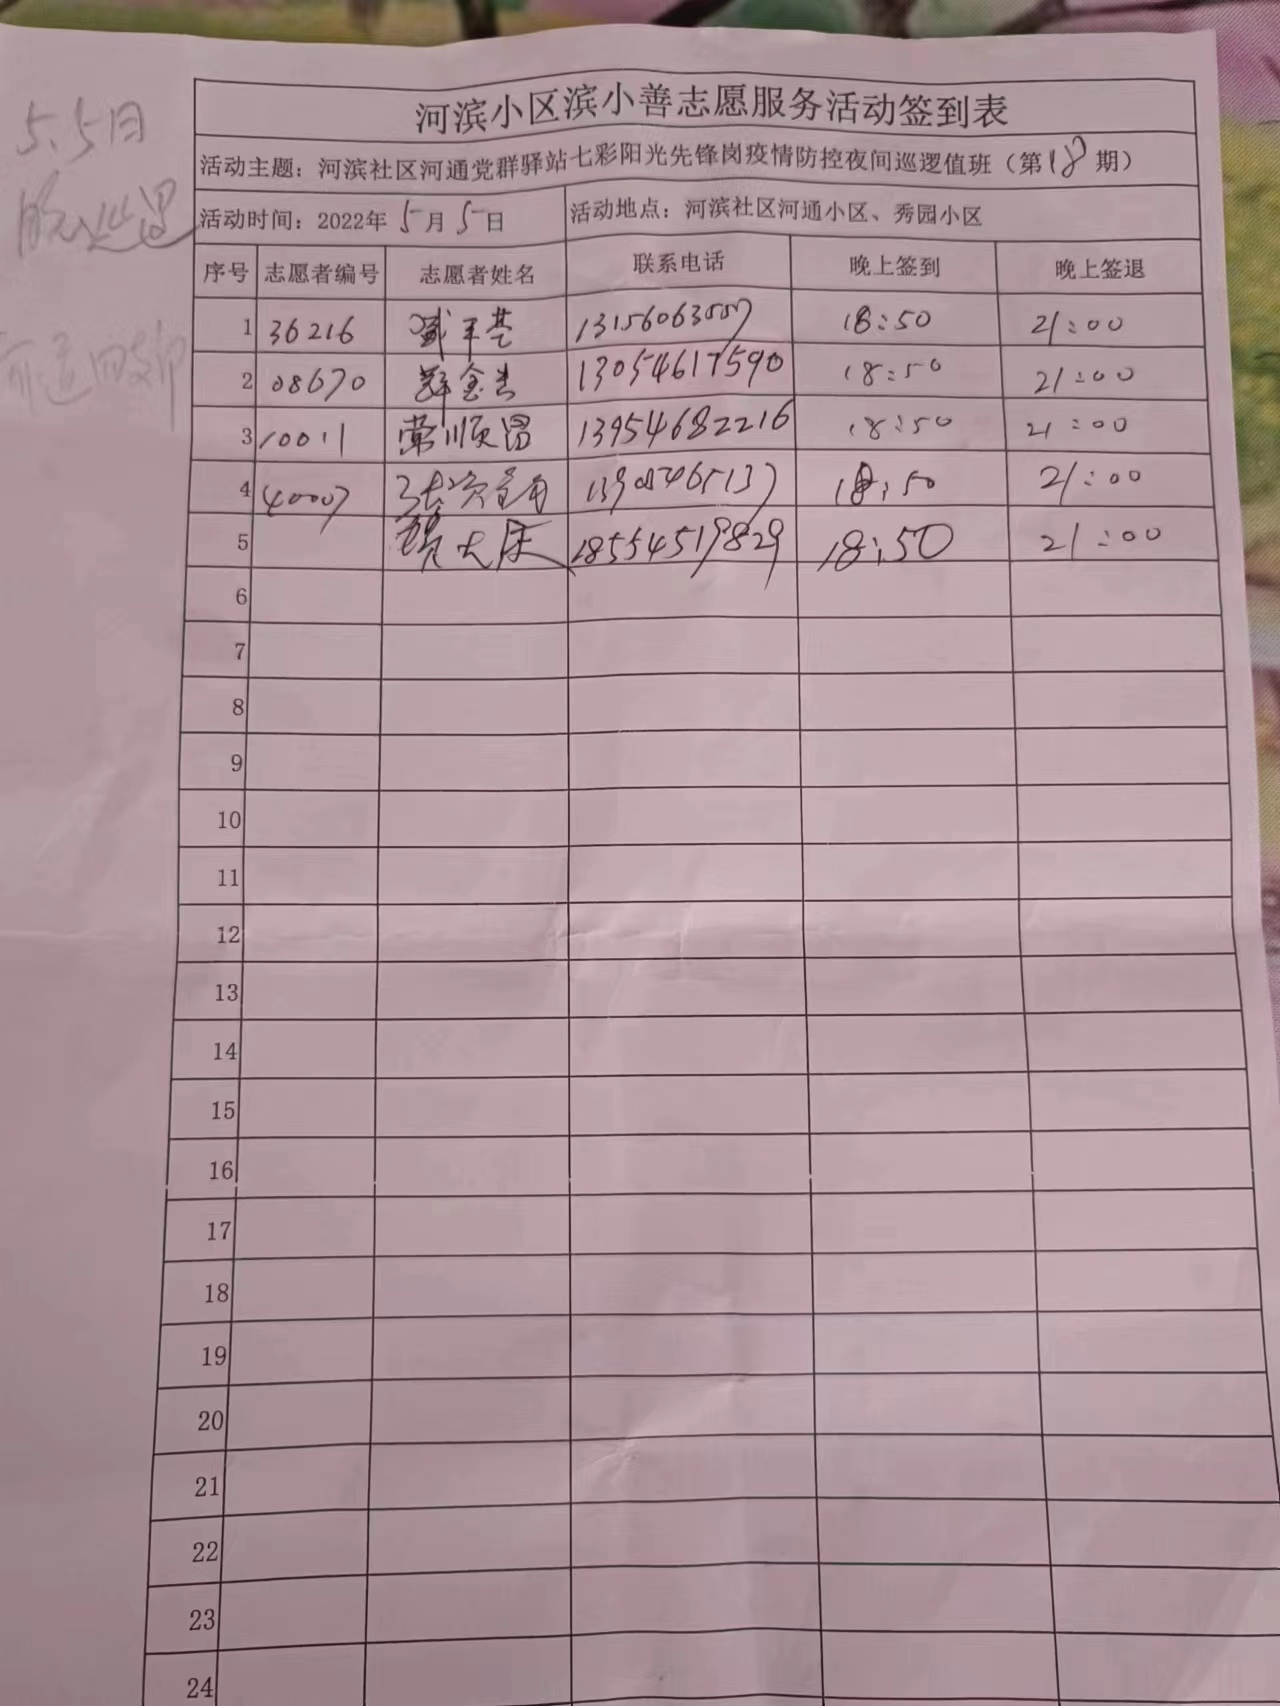 河滨小区滨小善志愿服务活动签到表
活动主题：河滨社区河通党群驿站七彩阳光先锋岗疫情防控夜间巡逻值班（第18期）
活动时间：2022年5月5日 活动地点：河滨社区河通小区、秀园小区
序号 志愿者编号 志愿者姓名 联系电话 晚上签到 晚上签退
1 36216 13156063557 18:50 21:00
2 08670 13054617590 18:50 21:00
3 10011 荣顺昌 13954682216 18:50 21:00
4 40007 18:50 21:00
5 18554519829 18:50 21:00
6
7
8
9
10
11
12
13
14
15
16
17
18
19
20
21
22
23
24
5.5日